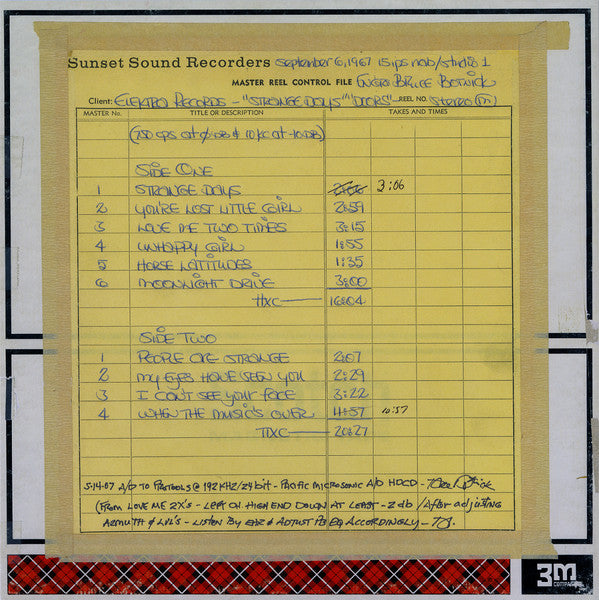 Sunset Sound Recorders September 6, 1967 15 ips nab/studio 1
MASTER REEL CONTROL FILE Engr Bruce Botnick
Client: Elektra Records - "Strange Days" "Doors" REEL NO. Stereo (m)
MASTER No. TITLE OR DESCRIPTION TAKES AND TIMES
(750 cps at 0 db & 10 kc at -10 db)
Side One
1 Strange Days 3:06
2 You're Lost Little Girl 2:59
3 Love Me Two Times 3:15
4 Unhappy Girl 1:55
5 Horse Latitudes 1:35
6 Moonlight Drive 3:00
TTXC 16:04
Side Two
1 People Are Strange 2:07
2 My Eyes Have Seen You 2:29
3 I Can't See Your Face 3:22
4 When The Music's Over 11:57 10:57
TTXC 20:27
5-14-07 A/D to ProTools @ 192 KHZ/24 bit - Pacific Microsonic A/D HDCD -
(From Love Me 2X's - Left CH. High End Down At Least - 2 db / After adjusting
Azimuth & LVL's - Listen By Ear & Adjust EQ Accordingly -
3M
COMPANY